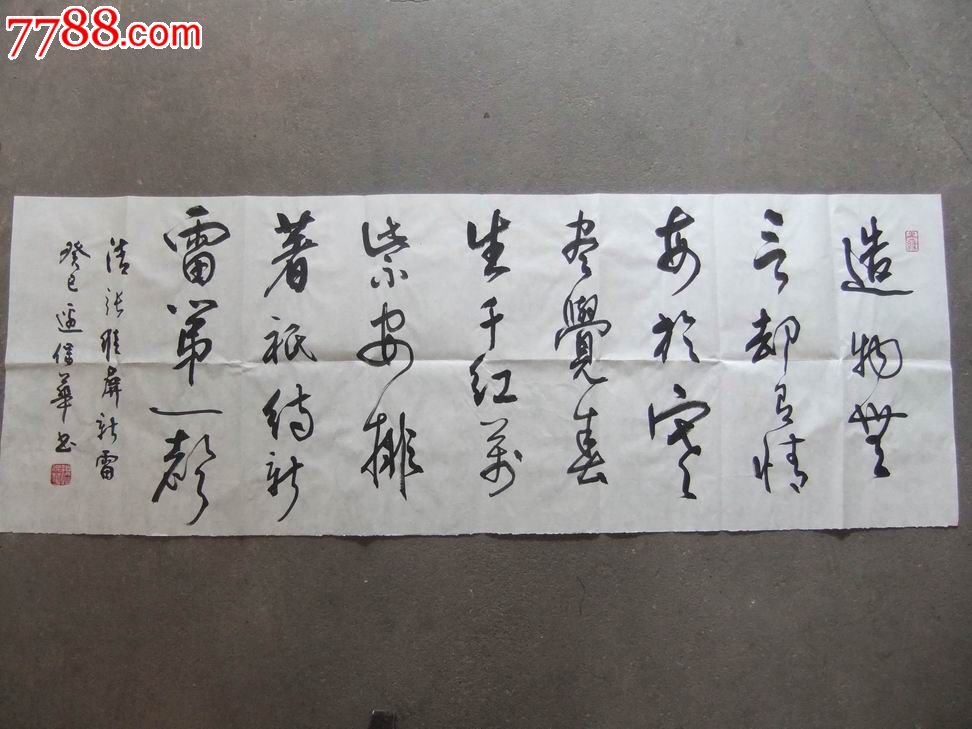 7788.com
造物無
言却有情
每於寒
尽覺春
生千红萬
紫安排
著祇待新
雷第一聲
清張維屏新雷
癸巳信華书